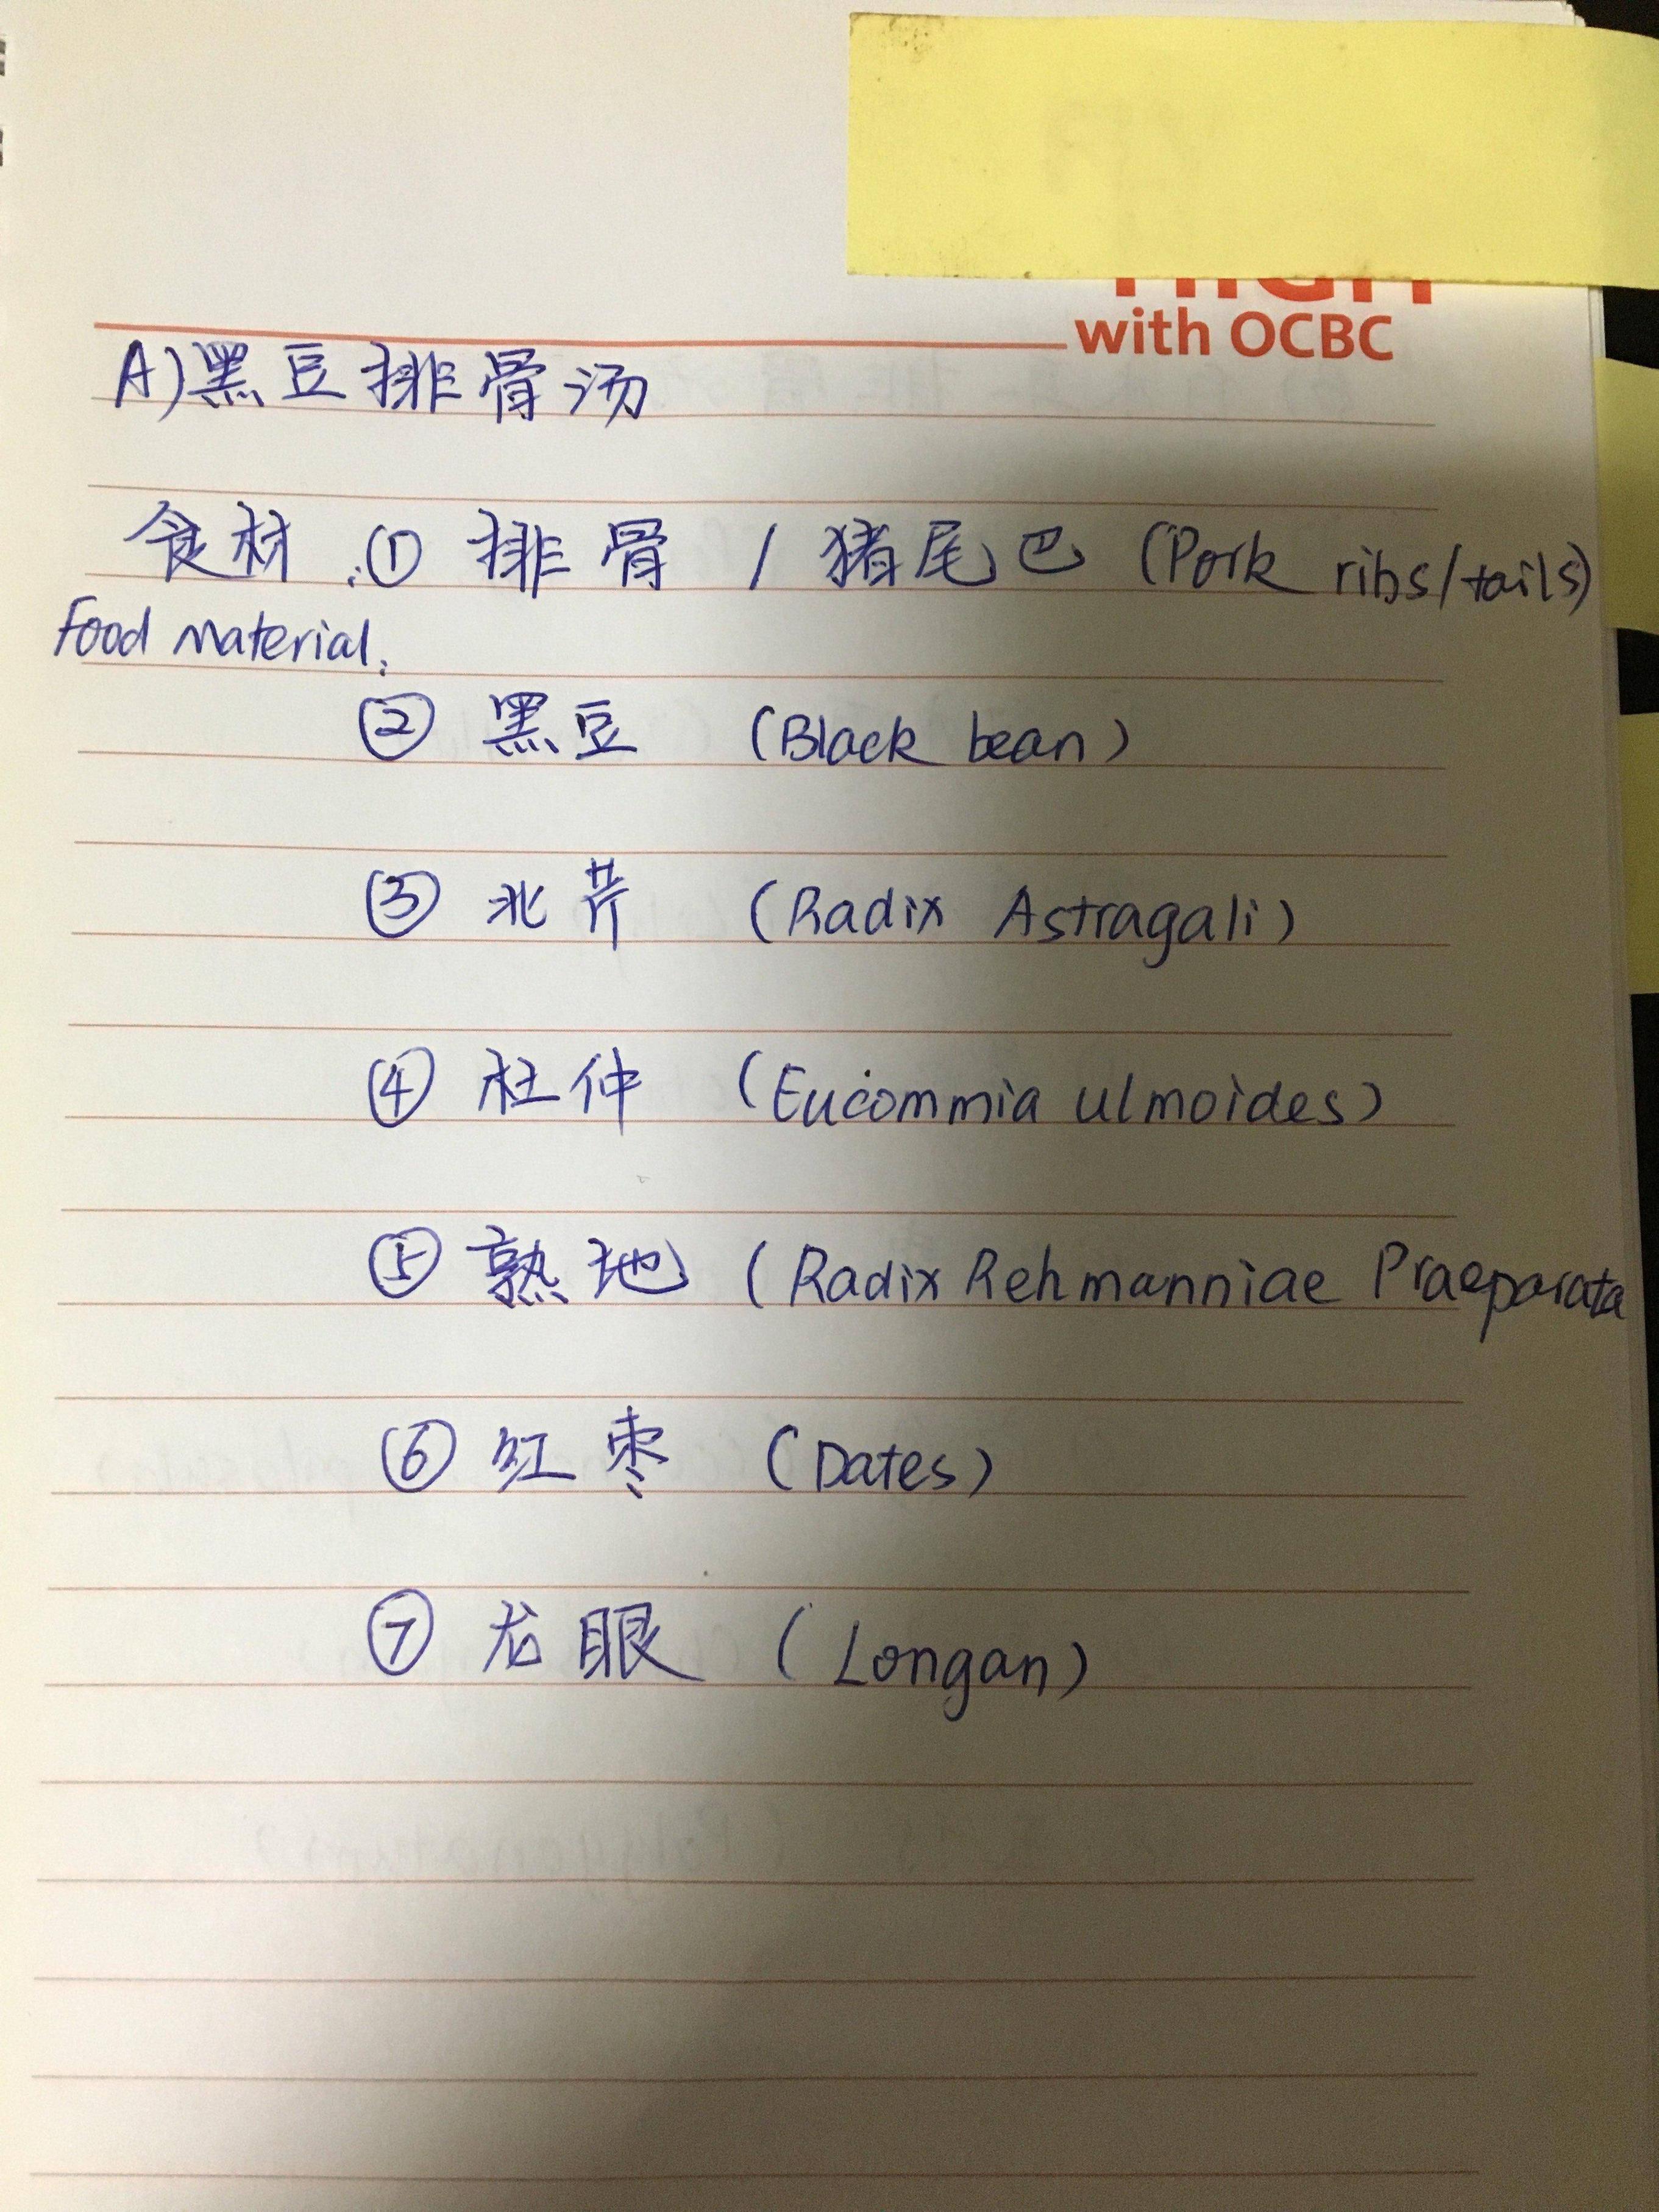 with OCBC
A) 黑豆排骨汤
食材:① 排骨 / 猪尾巴 (Pork ribs/tails)
Food Material:
② 黑豆 (Black bean)
③ 北芹 (Radix Astragali)
④ 杜仲 (Eucommia ulmoides)
⑤ 熟地 (Radix Rehmanniae Praeparata
⑥ 红枣 (Dates)
⑦ 龙眼 (Longan)